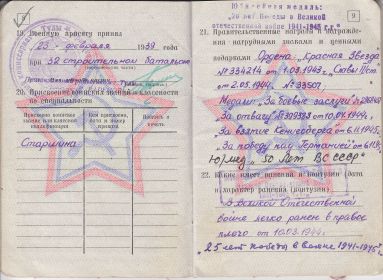 8
19. Военную присягу принял
23 " февраля 1939 года
при 52 строительном батальоне
20. Присвоение воинских званий и классности
по специальности
Присвоено воинское
звание или классная
квалификация
Кем присвоено,
дата и номер
приказа
Подпись и
печать
Старшина
9
Юбилейная медаль:
20 лет Победы в Великой
отечественной войне 1941-1945 г.г."
21. Правительственные награды и награждения
нагрудными знаками и ценными
подарками Ордена „Красная Звезда
№334214 от 1.03.1943 г.
от 2.05.1944 г. №33507
Медали „За боевые заслуги"
„За отвагу" №309323 от 10.04.1944 г.
„За взятие Кенигсберга от 6.11.1945 г.
„За победу над Германией"
Юб/мед „50 лет ВС СССР"
22. Какие имеет ранения и контузии, дата
и характер ранения (контузии)
в Великой Отечественной
войне легко ранен в правое
плечо от 10.03.1944 г.
„25 лет победы в войне 1941-1945 г."